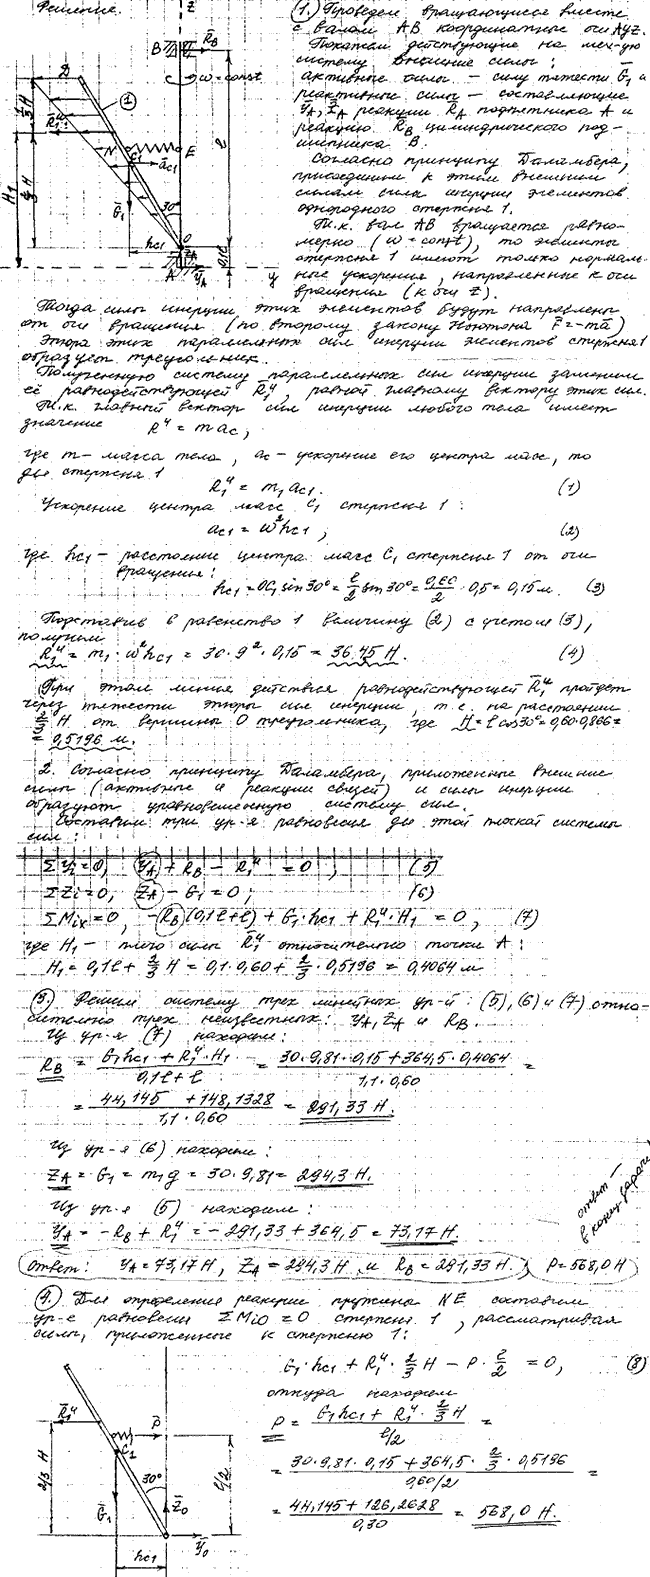 Решение.
1. Проведем вращающиеся вместе
с валом AB координатные оси Ayz.
Покажем действующие на мех-ую
систему внешние силы:
активные силы – силу тяжести G₁ и
реактивные силы – составляющие
Y_A, Z_A реакции R_A подпятника A и
реакцию R_B цилиндрического под-
шипника B.
Согласно принципу Даламбера,
присоединим к этим внешним
силам силы инерции элементов
однородного стержня 1.
Т.к. вал AB вращается равно-
мерно (ω = const), то элементы
стержня 1 имеют только нормаль-
ные ускорения, направленные к оси
вращения (к оси z).
Тогда силы инерции этих элементов будут направлены
от оси вращения (по второму закону Ньютона F̄ = -mā)
Эпюра этих параллельных сил инерции элементов стержня 1
образует треугольник.
Полученную систему параллельных сил инерции заменим
её равнодействующей R₁ᵘ, равной главному вектору этих сил.
Т.к. главный вектор сил инерции любого тела имеет
значение Rᵘ = m a_c,
где m – масса тела, a_c – ускорение его центра масс, то
для стержня 1
R₁ᵘ = m₁ a_c1. (1)
Ускорение центра масс C₁ стержня 1:
a_c1 = ω² h_c1, (2)
где h_c1 – расстояние центра масс C₁ стержня 1 от оси
вращения:
h_c1 = OC₁ sin 30° = ℓ/2 sin 30° = 0,60/2 · 0,5 = 0,15 м. (3)
Подставив в равенство 1 величину (2) с учетом (3),
получим
R₁ᵘ = m₁ · ω² h_c1 = 30 · 9² · 0,15 = 36.45 Н. (4)
При этом линия действия равнодействующей R₁ᵘ пройдет
через тяжести эпюры сил инерции, т.е. на расстоянии
2/3 H от вершины O треугольника, где H = ℓ cos 30° = 0,60·0,866 =
= 0,5196 м.
2. Согласно принципу Даламбера, приложенные внешние
силы (активные и реакции связей) и силы инерции
образуют уравновешенную систему сил.
Составим три ур-я равновесия для этой плоской системы
сил:
ΣYi = 0, Y_A + R_B – R₁ᵘ = 0, (5)
ΣZi = 0, Z_A – G₁ = 0; (6)
ΣMix = 0, –R_B(0,1ℓ+ℓ) + G₁·h_c1 + R₁ᵘ·H₁ = 0, (7)
где H₁ – плечо силы R₁ᵘ относительно точки A:
H₁ = 0,1ℓ + 2/3 H = 0,1·0,60 + 2/3 · 0,5196 = 0,4064 м
3. Решим систему трех линейных ур-й: (5), (6) и (7) отно-
сительно трех неизвестных: Y_A, Z_A и R_B.
Из ур-я (7) находим:
R_B = (G₁h_c1 + R₁ᵘ·H₁)/(0,1ℓ + ℓ) = (30·9,81·0,15 + 364,5·0,4064)/(1,1·0,60) =
= (44,145 + 148,1328)/(1,1·0,60) = 291,33 Н.
Из ур-я (6) находим:
Z_A = G₁ = m₁g = 30·9,81 = 294,3 Н.
Из ур-я (5) находим:
Y_A = –R_B + R₁ᵘ = –291,33 + 364,5 = 73,17 Н
ответ – в конец задачи
Ответ: Y_A = 73,17 Н, Z_A = 294,3 Н и R_B = 291,33 Н. P = 568,0 Н
4. Для определения реакции пружины KE составим
ур-е равновесия ΣMiO = 0 стержня 1, рассматривая
силы, приложенные к стержню 1:
G₁·h_c1 + R₁ᵘ·2/3 H – P·ℓ/2 = 0, (8)
откуда находим
P = (G₁h_c1 + R₁ᵘ·2/3 H)/(ℓ/2) =
= (30·9,81·0,15 + 364,5·2/3·0,5196)/(0,60/2) =
= (44,145 + 126,2628)/0,30 = 568,0 Н.